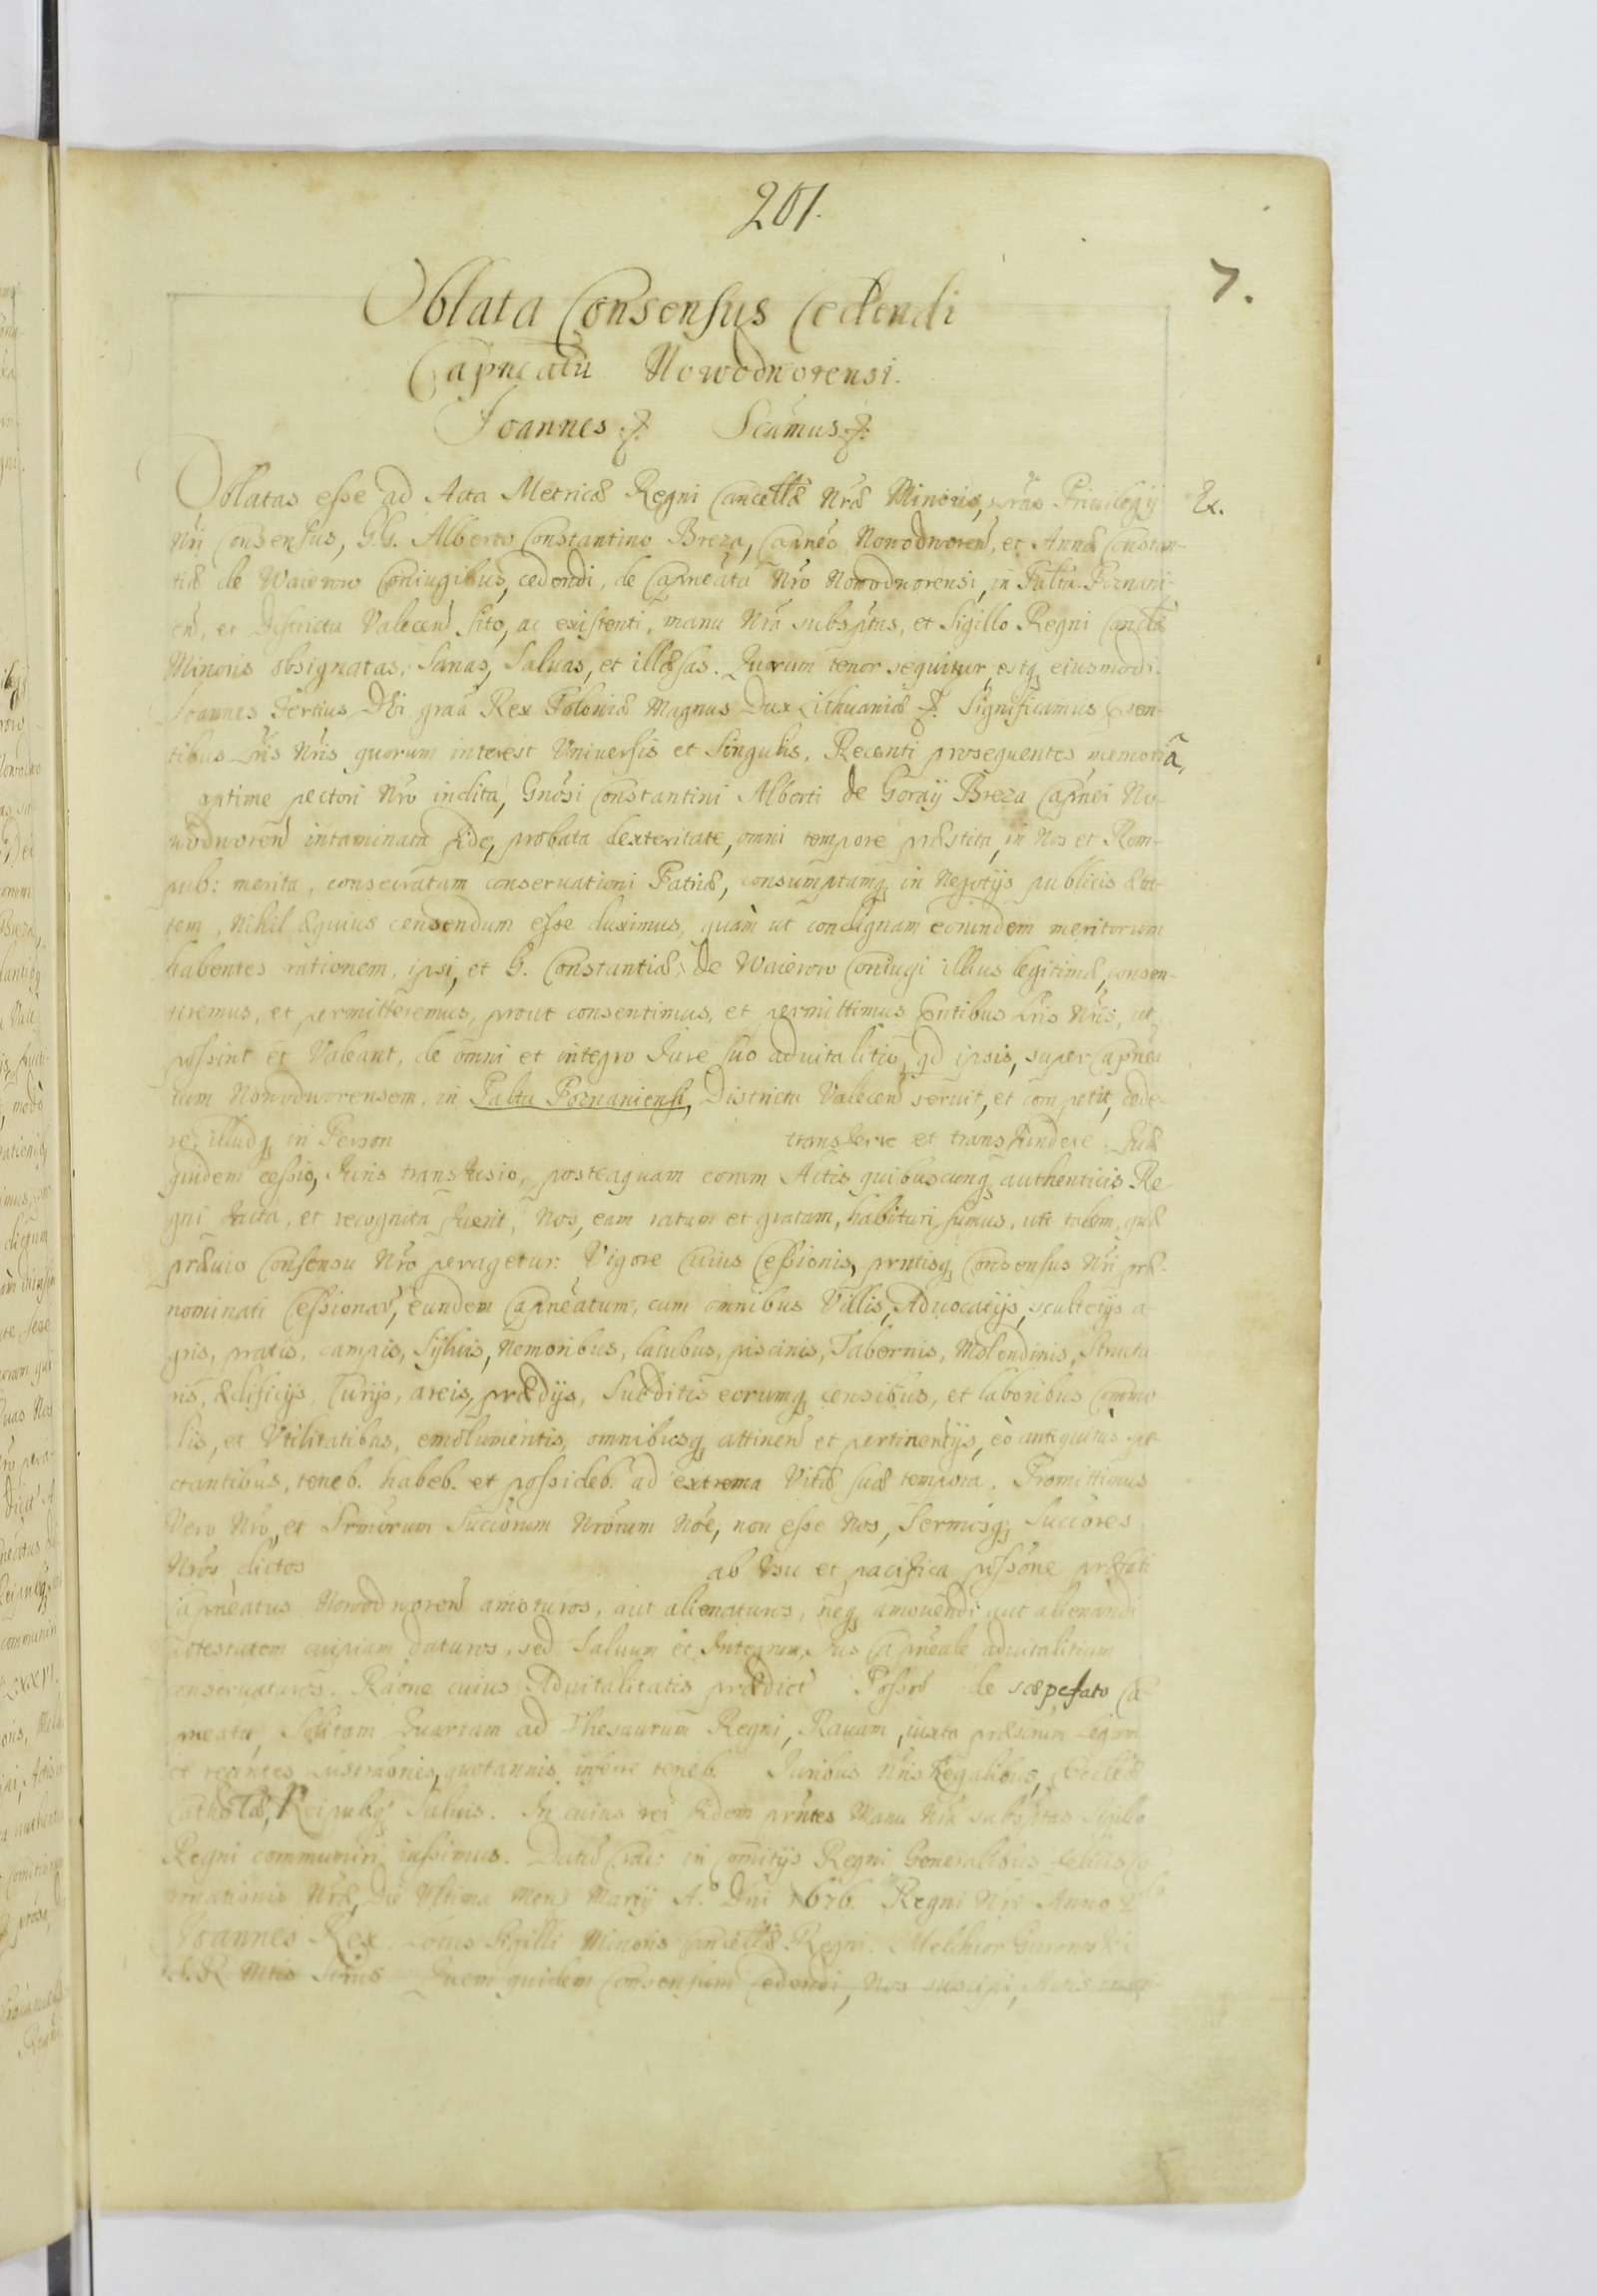 201.
7.
Oblata Consensus Cedendi
Capneatū Nowodworensi.
Joannes Scūmus
Oblatas esse ad Acta Metricæ Regni Cancellæ Nræ Minoris, Priuilegÿ
Ex.
Nri Consensus, G.G. Alberto Constantino Breza, Capneo Nowodworen, et Annæ Constan-
tiæ de Waierow Coniugibus, cedendi, de Capneatu Nro Nowodworensi, in Palttu Poznani-
en, et Districtu Valecen sito, ac existenti, manu Nra subsptas, et Sigillo Regni Cancellæ
Minoris obsignatas, Sanas, Saluas, et illæsas. Quorum tenor sequitur, estq eiusmodi.
Joannes Tertius Dei graa Rex Poloniæ Magnus Dux Lithuaniæ Significamus præsen-
tibus Lris Nris quorum interest Vniuersis et Singulis. Recenti prosequentes memoriā,
optime pectori Nro indita, Gnosi Constantini Alberti de Goraÿ Breza Capnei No-
wodworen intaminata fide, probata dexteritate, omni tempore præstita, in Nos et Rem-
pub: merita, consecratam conseruationi Patriæ, consumptamq in Negotÿs publicis æta-
tem, Nihil æquius censendum esse duximus, quàm ut condignam eorundem meritorum
habentes rationem, ipsi, et G. Constantiæ, de Waierow Coniugi illius legitimæ, consen-
tiremus, et permitteremus, prout consentimus, et permittimus pntibus Lris Nris, ut
possint et Valeant, de omni et integro Jure suo aduitalitio, qd ipsis, super Capnea
tum Nowodworensem, in Paltu Poznaniensi, Districtu Valecen seruit, et competit, cede-
re, illudq in Person transferre et transfundere. Quæ
quidem cessio, Juris transfusio, posteaquam coram Actis quibuscunq authenticis Re-
gni facta, et recognita fuerit, Nos, eam ratam et gratam, habituri sumus, uti talem, quæ
præuio Consensu Nro peragetur. Vigore cuius Cessionis, prntisq Consensus Nri præ-
nominati Cessionar, eundem Capneatum, cum omnibus Villis, Aduocatÿs, scultetÿs a-
gris, pratis, campis, Sÿluis, Nemoribus, lacubus, piscinis, Tabernis, Molendinis, Structu
ris, ædificÿs, Curÿs, areis, prædÿs, Subditis eorumq censibus, et laboribus Commo
dis, et Vtilitatibus, emolumentis, omnibusq attinen et pertinentÿs, eò antiquitùs spe-
ctantibus, teneb. habeb. et possideb. ad extrema Vitæ suæ tempora. Promittimus
Vero Nro, et Srmorum Succorum Nrorum Noe, non esse Nos, Sermosq Succores
Nros dictos ab Vsu et pacifica possone præfati
Capneatus Nowodworen amoturos, aut alienaturos, neq amouendi aut alienandi
potestatem cuipiam daturos, sed Saluum et Integrum Jus Capneale aduitalitium
conseruaturos. Raone cuius Aduitalitatis prædict Possor de sæpefato Ca-
pneatu, Solitam Quartam ad Thesaurum Regni, Rauam, iuxta præscrum Legum
et recentes Lustraones, quotannis inferre teneb. Juribus Nris Regalibus, Ecclæ
Catholæ, Reipubq Saluis. In cuius rei fidem prntes Manu Nra subsptas Sigillo
Regni communiri iussimus. Datū Crac: in Comitÿs Regni Generalibus felicis Co-
ronationis Nræ, Die Vltima Mens Martÿ A.º Dni 1676. Regni Nri Anno 2do
Joannes Rex. Locus Sigilli Minoris Cancellæ Regni. Melchior
Quem quidem Consensum Cedendi, Nos suscipi, Actis